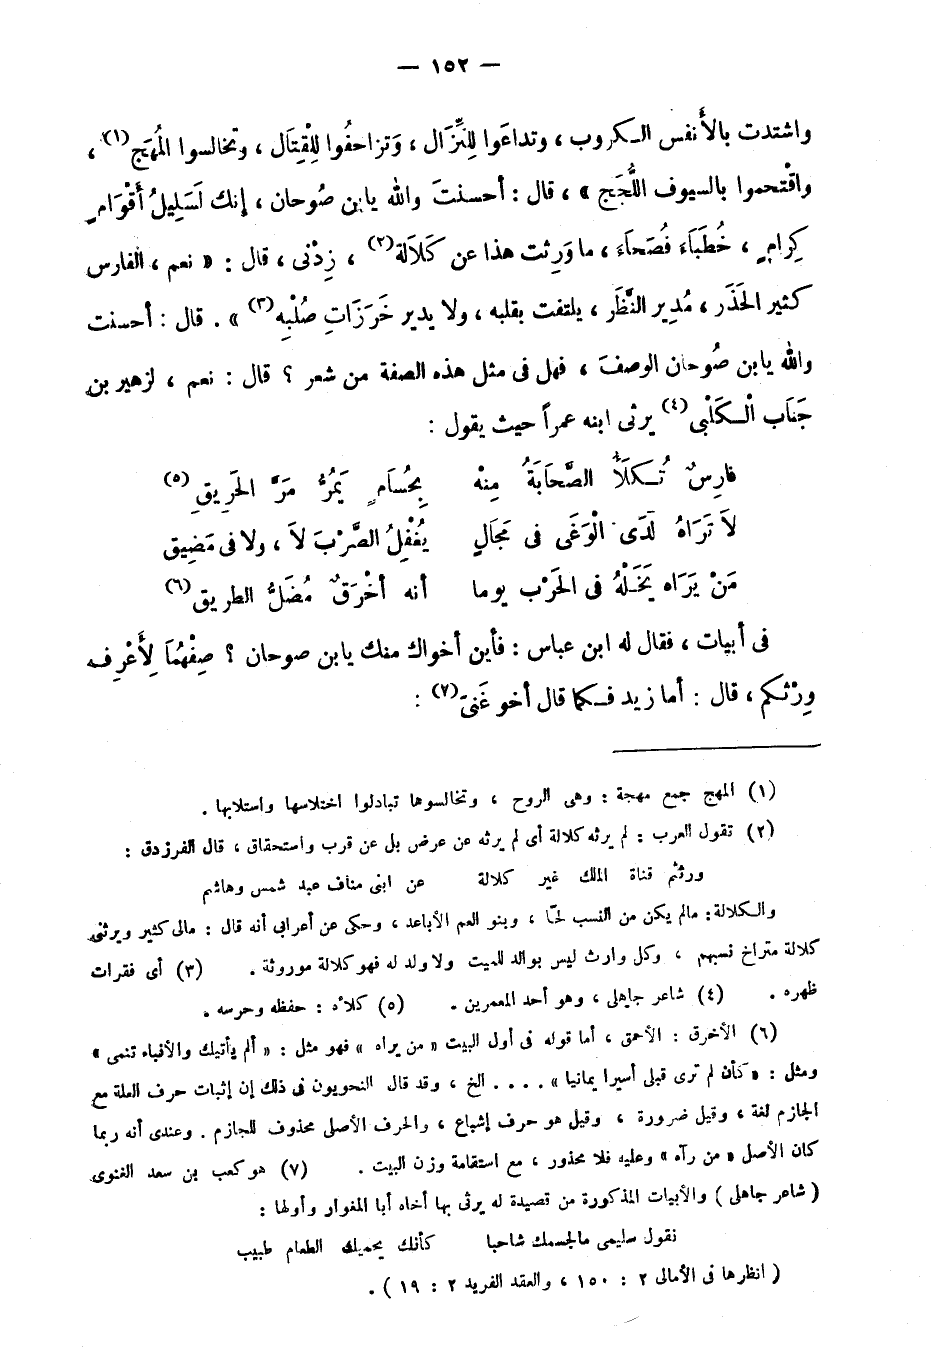 — ١٥٢ —
واشتدت بالأَنفس الكروب ، وتداعَوا لِلنِّزَال ، وَتزاحفُوا لِلْقِتَال ، وتخالسوا المُهَج (١) ،
واقْتحموا بالسيوف اللُّجَج » ، قال : أحسنتَ والله يابن صُوحان ، إنك لَسَلِيلُ أَقْوَامٍ
كِرامٍ ، خُطَبَاءَ فُصَحاءَ ، ما وَرِثت هذا عن كَلاَلة (٢) ، زِدْنى ، قال : « نعم ، الفارس
كثير الحَذَر ، مُدِير النَّظَر ، يلتفت بقلبه ، ولا يدير خَرَزَاتِ صُلْبِه (٣) » . قال : أحسنت
والله يابن صُوحان الوصفَ ، فهل فى مثل هذه الصفة من شعر ؟ قال : نعم ، لزهير بن
جَنَاب الْكَلْبى (٤) يرثى ابنه عمراً حيث يقول :
فارِسٌ تُكلَأُ الصَّحَابَةُ مِنْه بِحُسَامٍ يَمُرُّ مَرَّ الحَرِيقِ (٥)
لاَ تَرَاهُ لَدَى الْوَغَى فى مَجَالٍ يُغْفِلُ الضَّرْبَ لاَ ، ولا فى مَضِيقِ
مَنْ يَرَاه يَخَلْهُ فى الحَرْبِ يوما أنه أخْرَقٌ مُضَلُّ الطريق (٦)
فى أبيات ، فقال له ابن عباس : فأين أخواك منك يابن صوحان ؟ صِفْهُمَا لِأَعْرِف
وِرْثَكم ، قال : أما زيد فكما قال أخو غَنىّ (٧) :
(١) المهج جمع مهجة : وهى الروح ، وتخالسوها تبادلوا اختلاسها واستلابها .
(٢) تقول العرب : لم يرثه كلالة أى لم يرثه عن عرض بل عن قرب واستحقاق ، قال الفرزدق :
ورثتم قناة الملك غير كلالة عن ابنى مناف عبد شمس وهاشم
والكلالة : مالم يكن من النسب لحّا ، وبنو العم الأباعد ، وحكى عن أعرابى أنه قال : مالى كثير ويرثنى
كلالة متراخ نسبهم ، وكل وارث ليس بوالد للميت ولا ولد له فهو كلالة موروثة . (٣) أى فقرات
ظهره . (٤) شاعر جاهلى ، وهو أحد المعمرين . (٥) كلأه : حفظه وحرسه .
(٦) الأخرق : الأحمق ، أما قوله فى أول البيت « من يراه » فهو مثل : « ألم يأتيك والأنباء تنمى »
ومثل : « كأن لم ترى قبلى أسيرا يمانيا » .... الخ ، وقد قال النحويون فى ذلك إن إثبات حرف العلة مع
الجازم لغة ، وقيل ضرورة ، وقيل هو حرف إشباع ، والحرف الأصلى محذوف للجازم . وعندى أنه ربما
كان الأصل « من رآه » وعليه فلا محذور ، مع استقامة وزن البيت . (٧) هو كعب بن سعد الغنوى
( شاعر جاهلى ) والأبيات المذكورة من قصيدة له يرثى بها أخاه أبا المغوار وأولها :
تقول سليمى مالجسمك شاحبا كأنك يحميك الطعام طبيب
( انظرها فى الأمالى ٢ : ١٥٠ ، والعقد الفريد ٢ : ١٩ ) .